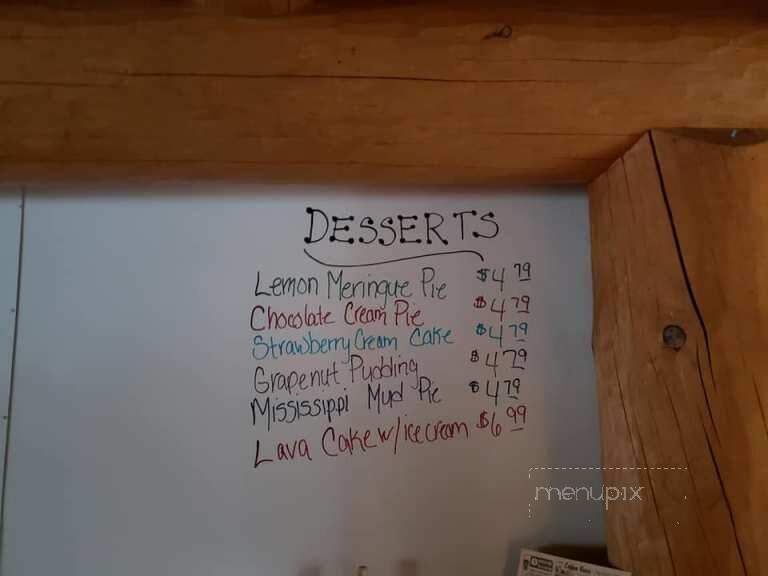 DESSERTS
Lemon Meringue Pie $4.79
Chocolate Cream Pie $4.79
Strawberry Cream Cake $4.79
Grapenut Pudding $4.79
Mississippi Mud Pie $4.79
Lava Cake w/ ice cream $6.99
menupix